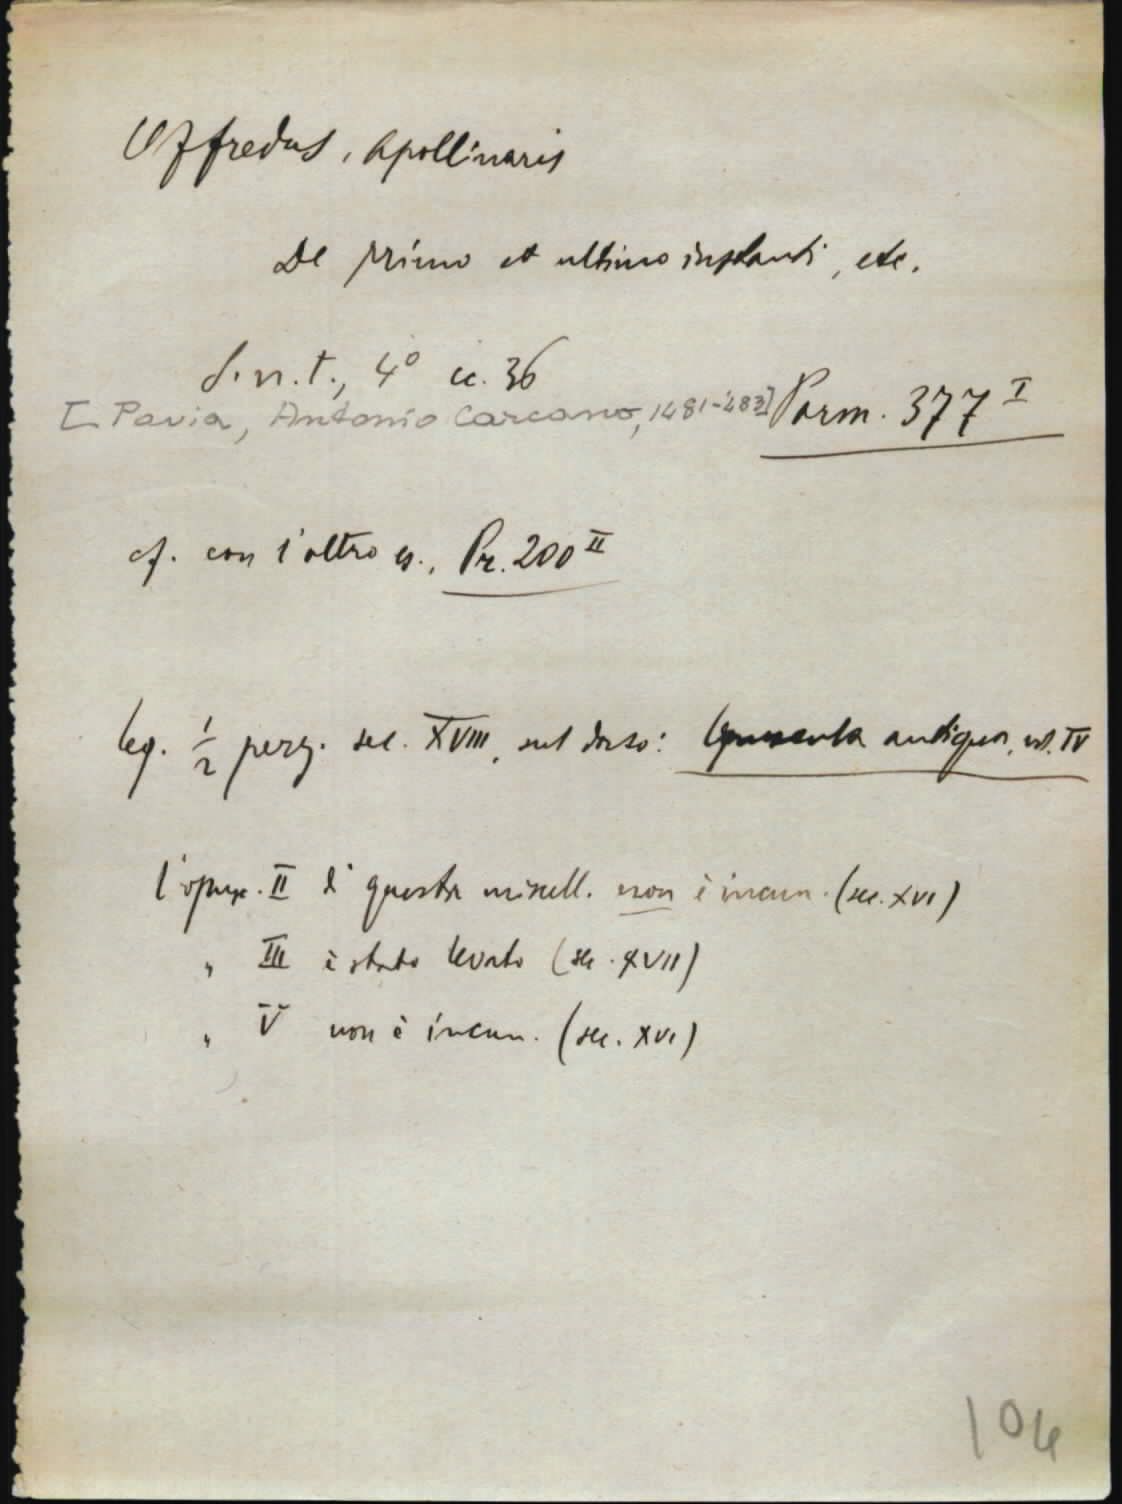 Offredus, Apollinaris
De primo et ultimo instanti, etc.
S.n.t., 4° cc. 36
[Pavia, Antonio Carcano, 1481-1483] Parm. 377 I
cf. con l'altro es., Pr. 200 II
leg. 1/2 perg. sec. XVIII, sul dorso: Opuscula antiqua, vol. IV
l'opusc. II di questa miscell. non è incun. (sec. XVI)
" III è stato levato (sec. XVII)
" V non è incun. (sec. XVI)
104